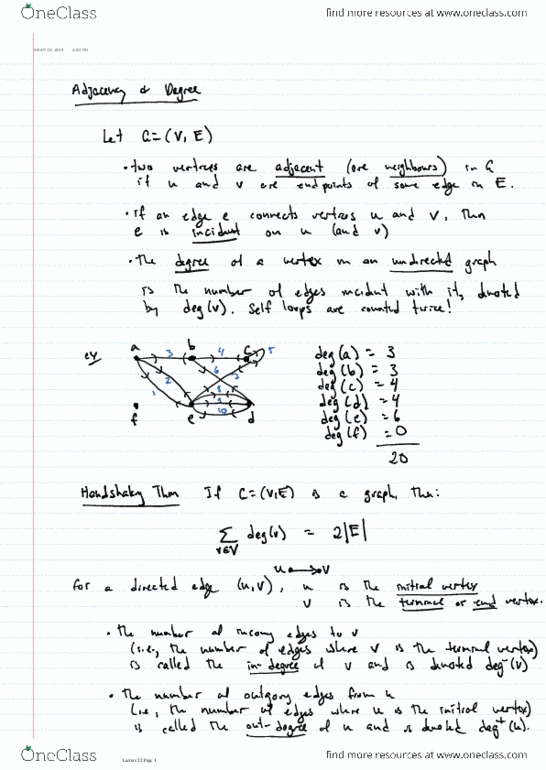 OneClass
find more resources at www.oneclass.com
Adjacency & Degree
Let G=(V,E)
• two vertices are adjacent (are neighbours) in G
if u and v are endpoints of some edge in E.
• if an edge e connects vertices u and v, then
e is incident on u (and v)
• The degree of a vertex in an undirected graph
is the number of edges incident with it, denoted
by deg(v). Self loops are counted twice!
ex
a
b
c
3
4
5
2
6
1
f
e
d
10
deg(a) = 3
deg(b) = 3
deg(c) = 4
deg(d) = 4
deg(e) = 6
deg(f) = 0
20
Handshaking Thm If G=(V,E) is a graph, then:
∑ deg(v) = 2|E|
v∈V
u v
For a directed edge (u,v), u is the initial vertex
v is the terminal or end vertex.
• The number of incoming edges to v
(i.e., the number of edges where v is the terminal vertex)
is called the in-degree of v and is denoted deg⁻(v)
• The number of outgoing edges from u
(i.e., the number of edges where u is the initial vertex)
is called the out-degree of u and is denoted deg⁺(u).
Lecture 22 Page 1
OneClass
find more resources at www.oneclass.com